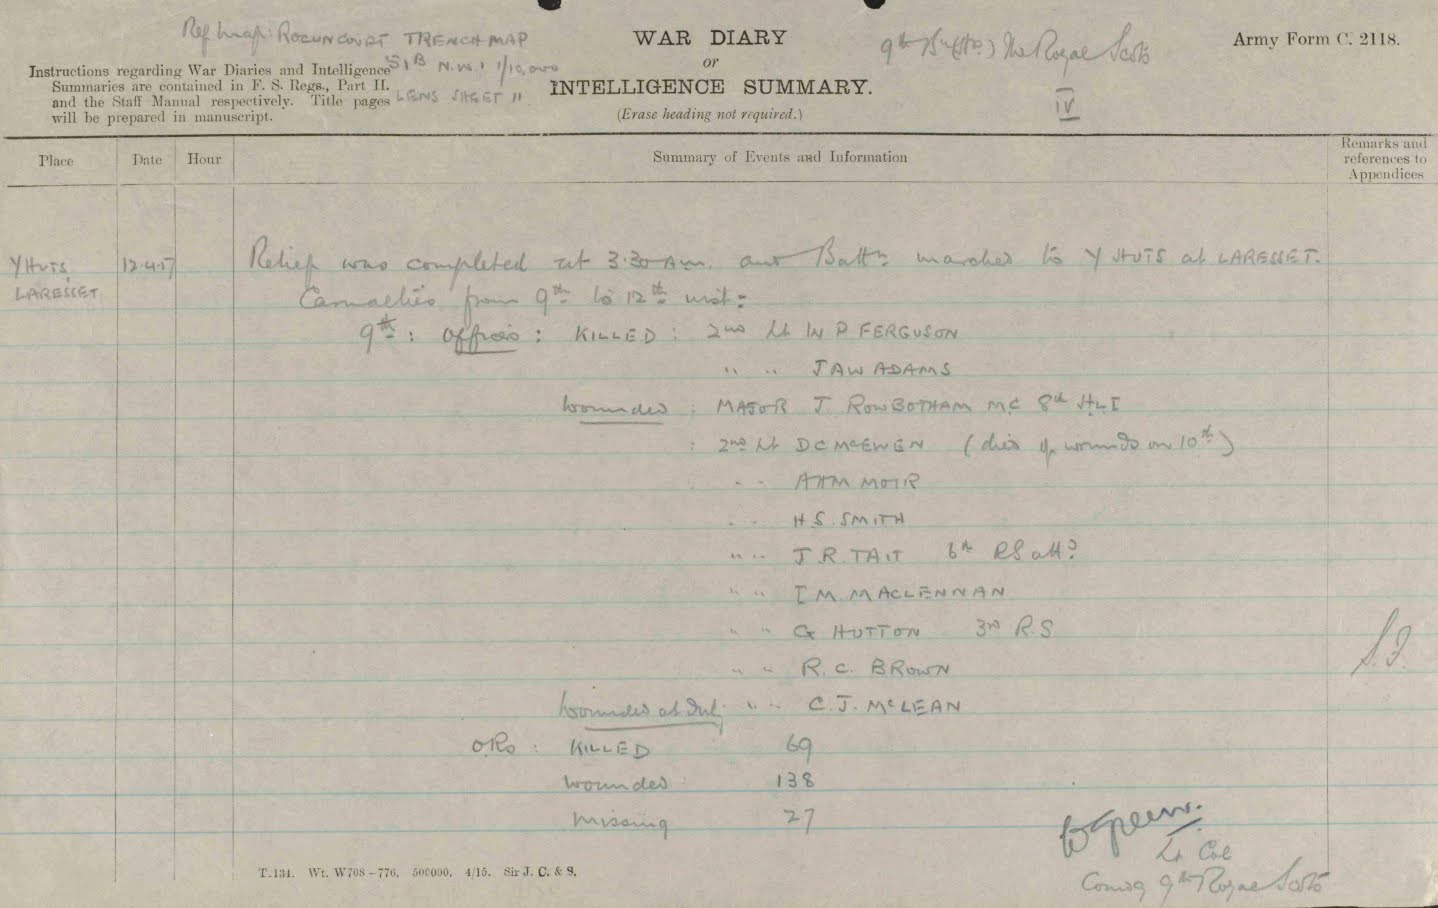 Ref Map: ROCLINCOURT TRENCH MAP
51B N.W.1 1/10,000
LENS SHEET 11
WAR DIARY
or
INTELLIGENCE SUMMARY.
(Erase heading not required.)
9th Bn (HRs) The Royal Scots
IV
Army Form C. 2118.
Instructions regarding War Diaries and Intelligence
Summaries are contained in F. S. Regs., Part II.
and the Staff Manual respectively. Title pages
will be prepared in manuscript.
Place Date Hour Summary of Events and Information Remarks and references to Appendices
Y HUTS LARESSET 12.4.17 Relief was completed at 3.30 AM. and Battn marched to Y HUTS at LARESSET.
Casualties from 9th to 12th inst:
9th: Officers: KILLED: 2nd Lt W P FERGUSON
" " J A W ADAMS
Wounded: MAJOR J ROWBOTHAM MC 8th HLI
: 2nd Lt D C McEWEN (died of wounds on 10th)
" " A H M MOIR
" " H S. SMITH
" " J. R. TAIT 6th RS attd
" " I M. MACLENNAN
" " G HUTTON 3rd R.S
" " R. C. BROWN
Wounded at Duty " " C. J. McLEAN
ORs: KILLED 69
Wounded: 138
Missing 27
S.J.
W Green.
Lt Col
Comdg 9th Royal Scots
T.134. Wt. W708-776. 500000. 4/15. Sir J. C. & S.